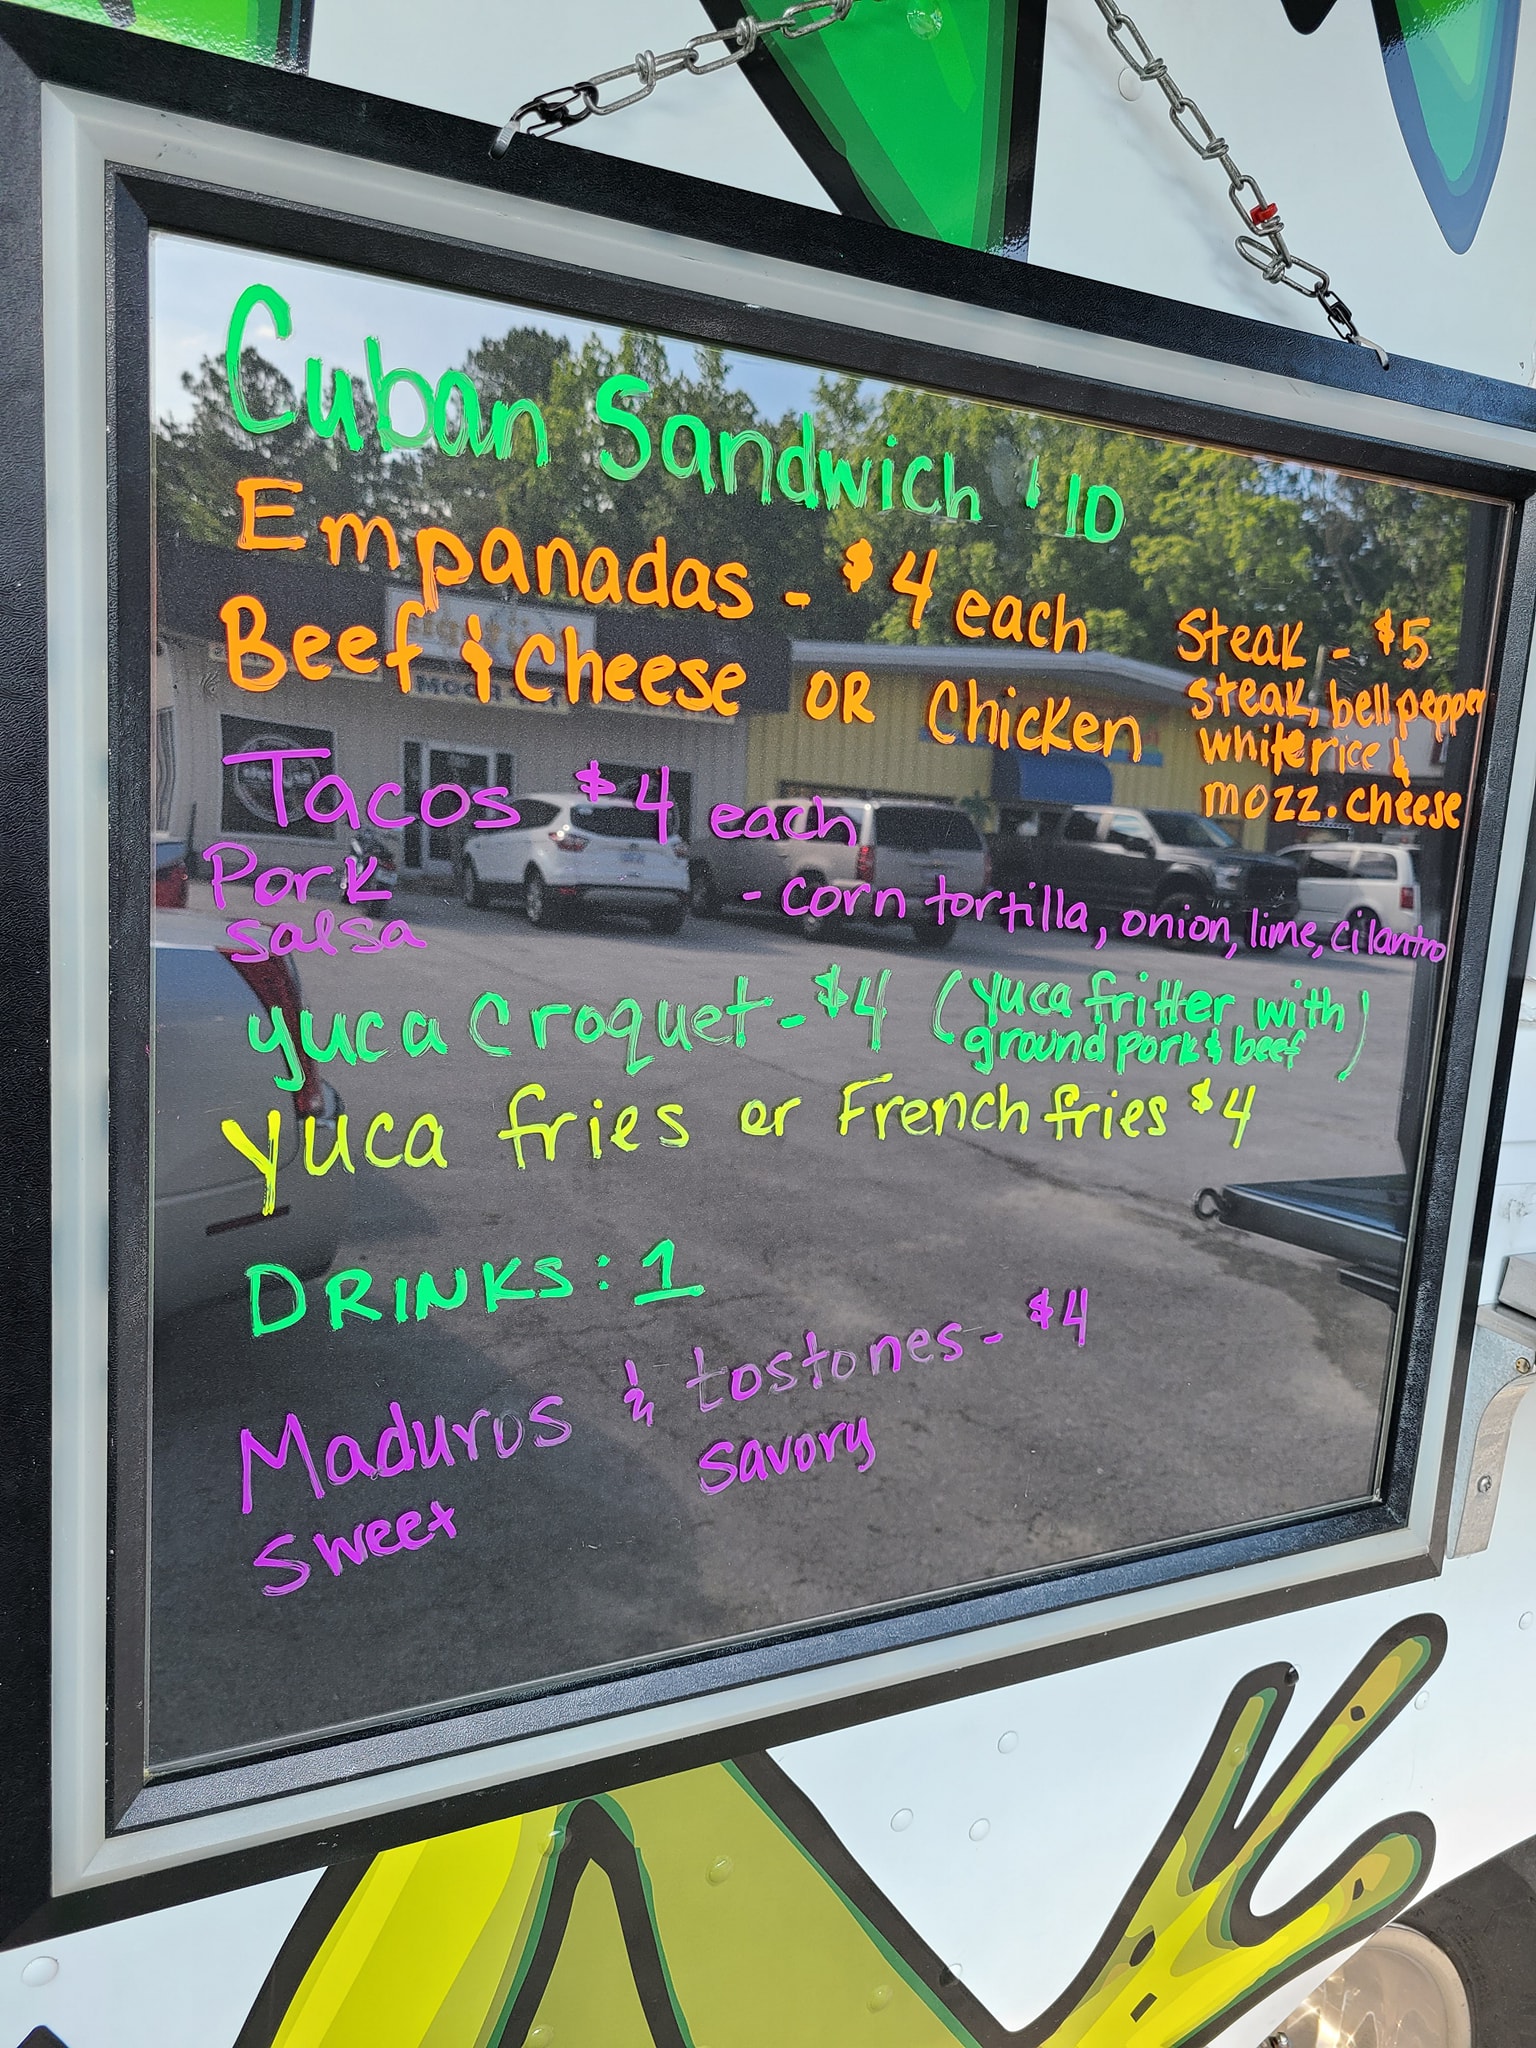 Cuban Sandwich $10
Empanadas - $4 each
Beef & Cheese OR Chicken
Steak - $5
steak, bell pepper
white rice &
mozz. cheese
Tacos $4 each
Pork
salsa
- corn tortilla, onion, lime, cilantro
yuca Croquet - $4 (yuca fritter with
ground pork & beef)
yuca fries or French fries $4
DRINKS: 1
Maduros & tostones - $4
sweet
savory